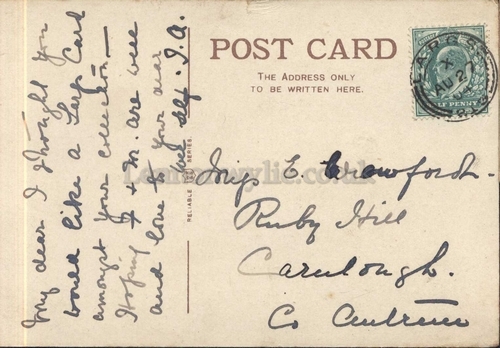 My dear I thought you
would like a Largs Card
amongst your collection —
Hoping F & M. are well
and love to your dear
wee self. J. A.
POST CARD
THE ADDRESS ONLY
TO BE WRITTEN HERE.
RELIABLE SERIES
LARGS
X
AU 27
HALFPENNY
Miss E. Crawford
Ruby Hill
Carnlough.
Co Antrim